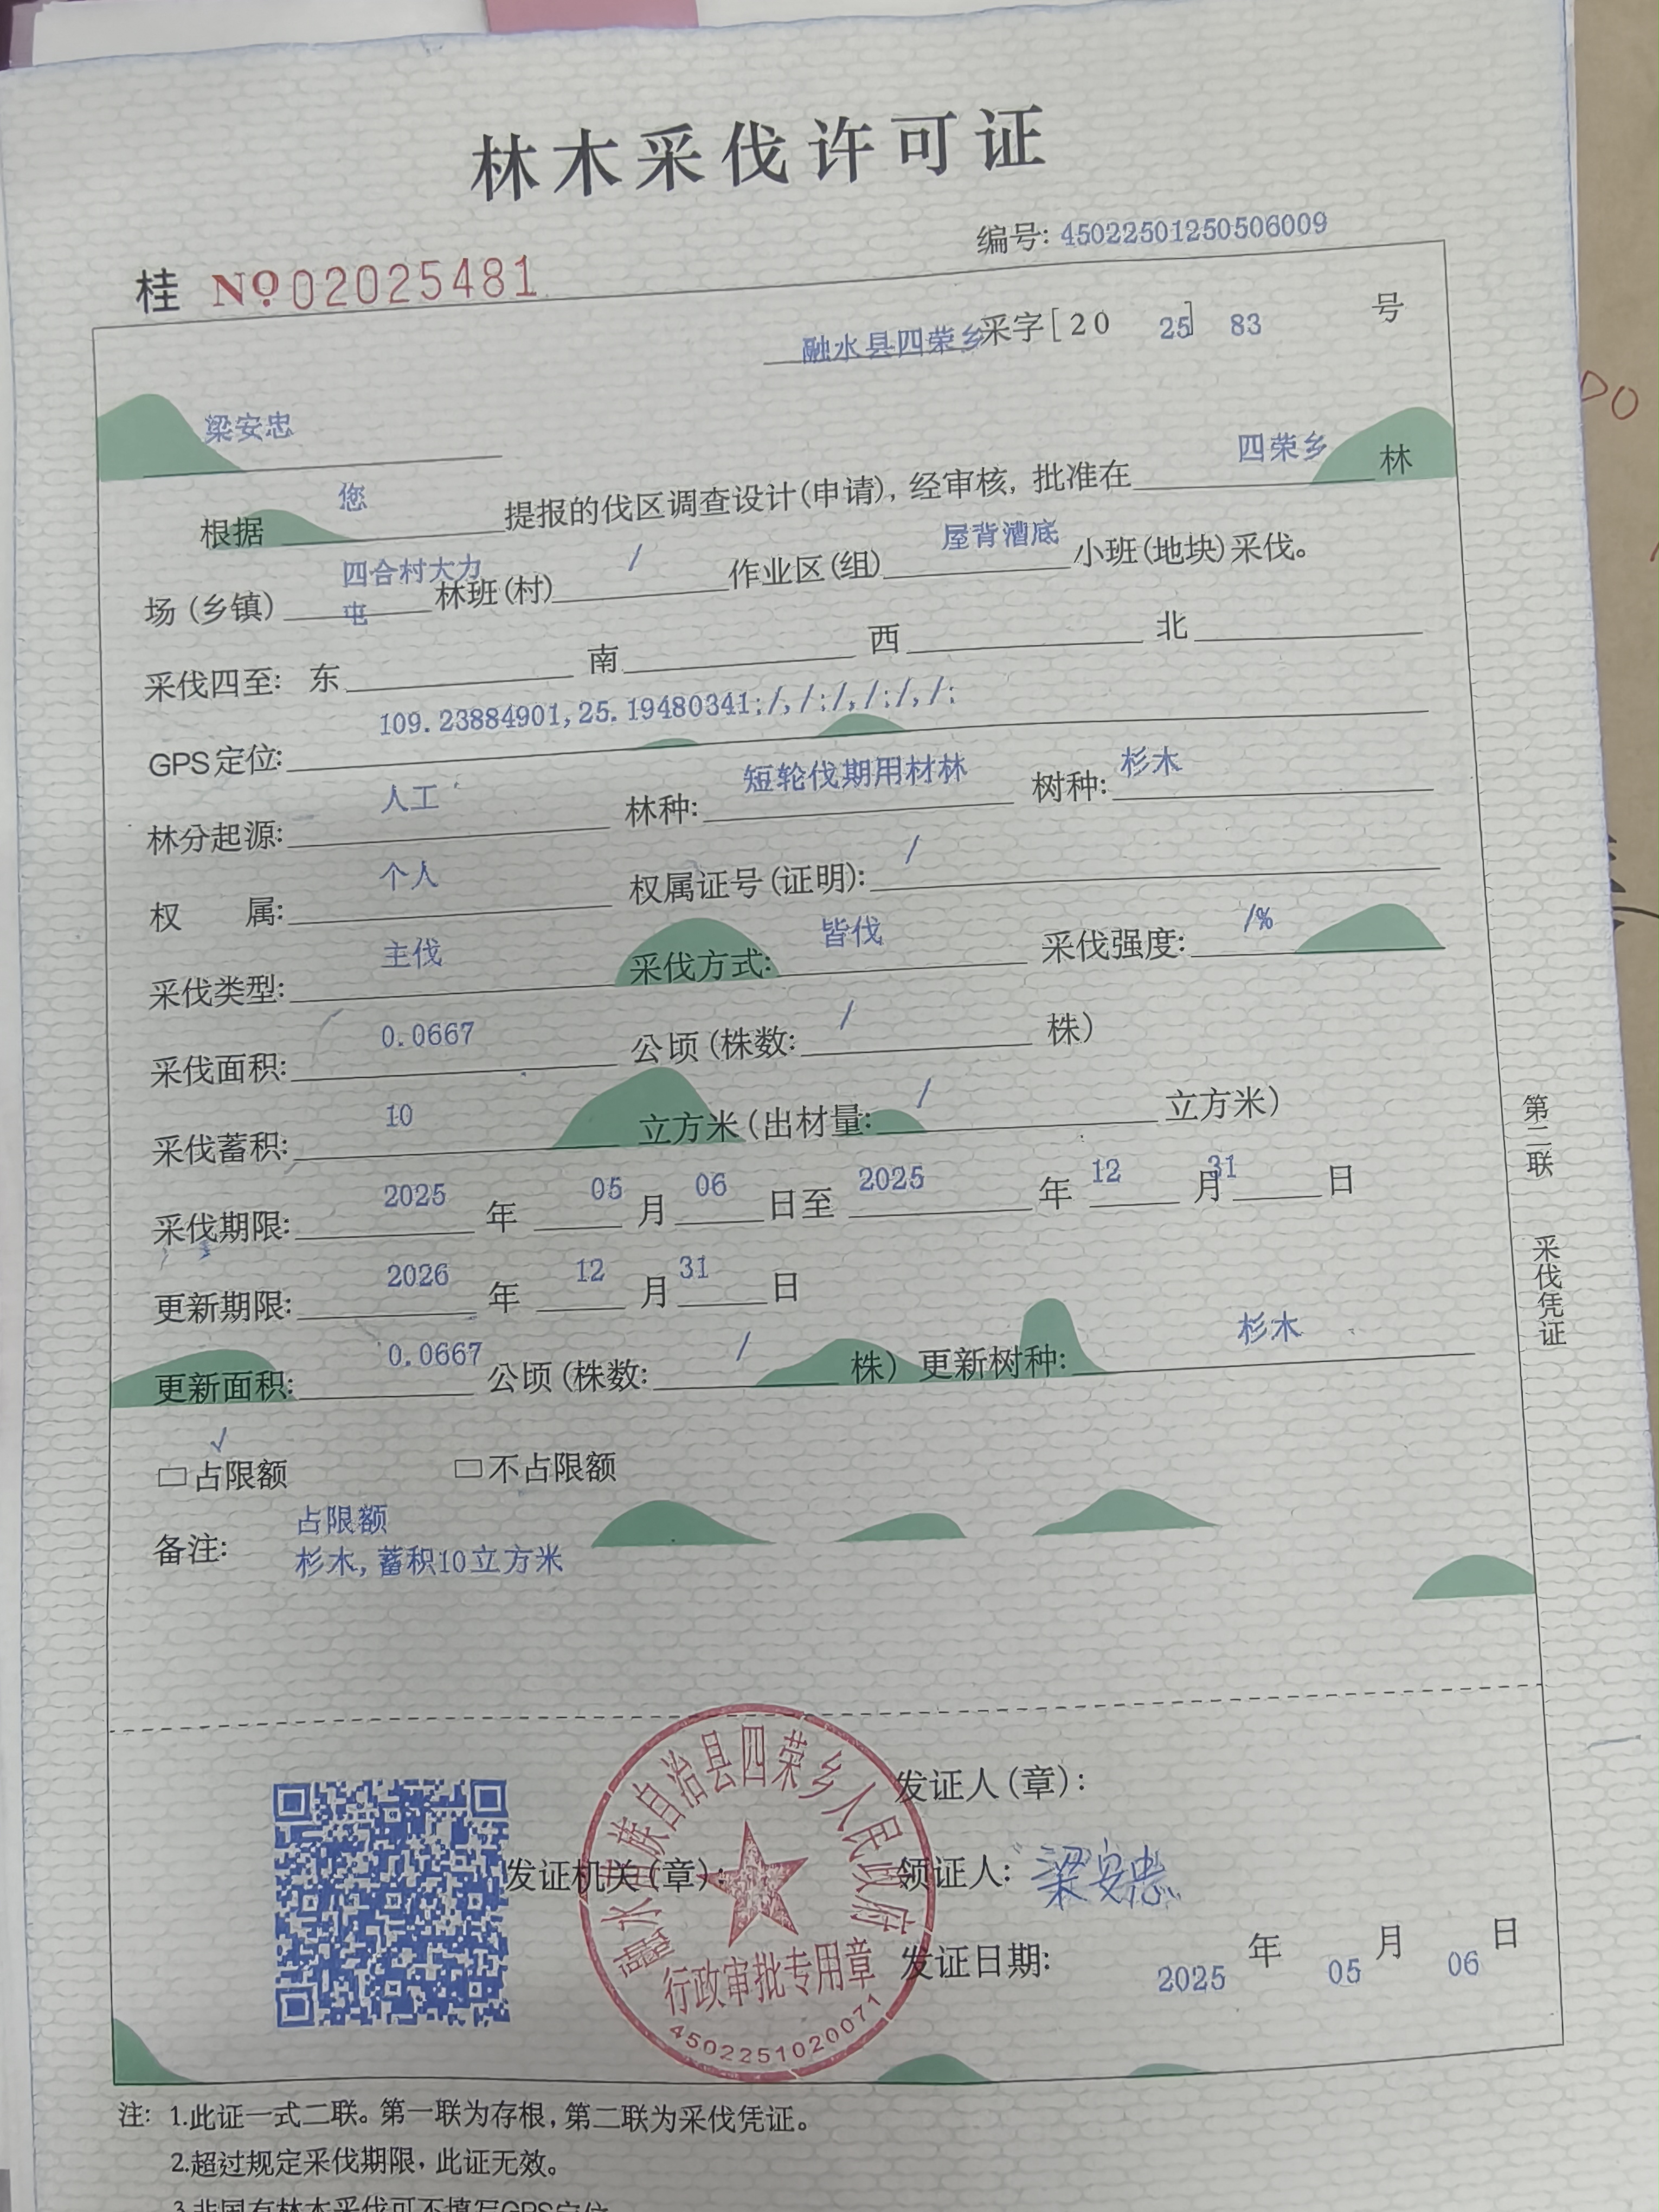 林木采伐许可证
编号: 45022501250506009
桂 No 02025481
融水县四荣乡采字[2025]83号
梁安忠
根据 您 提报的伐区调查设计(申请), 经审核, 批准在 四荣乡 林
场(乡镇) 四合村大力屯 林班(村) / 作业区(组) 屋背漕底 小班(地块)采伐。
采伐四至: 东 南 西 北
GPS定位: 109.23884901,25.19480341;/,/;/,/;/,/;
林分起源: 人工 林种: 短轮伐期用材林 树种: 杉木
权 属: 个人 权属证号(证明): /
采伐类型: 主伐 采伐方式: 皆伐 采伐强度: /%
采伐面积: 0.0667 公顷(株数: / 株)
采伐蓄积: 10 立方米(出材量: / 立方米)
采伐期限: 2025 年 05 月 06 日至 2025 年 12 月 31 日
更新期限: 2026 年 12 月 31 日
更新面积: 0.0667 公顷(株数: / 株) 更新树种: 杉木
√
□占限额 □不占限额
备注: 占限额
杉木, 蓄积10立方米
第二联 采伐凭证
发证人(章):
发证机关(章):
领证人: 梁安忠
发证日期: 2025 年 05 月 06 日
融水苗族自治县四荣乡人民政府
行政审批专用章
4502251020071
注: 1.此证一式二联。第一联为存根, 第二联为采伐凭证。
2.超过规定采伐期限, 此证无效。
3.非国有林木采伐可不填写GPS定位